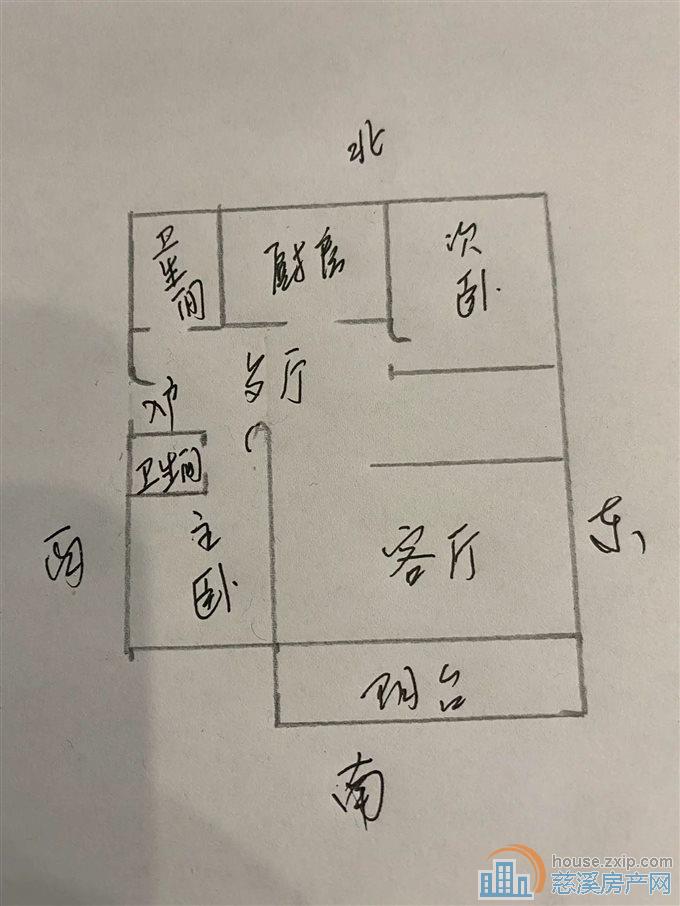 北
卫生间
厨房
次卧
客厅
入户
卫生间
主卧
客厅
西
东
阳台
南
house.zxip.com
慈溪房产网